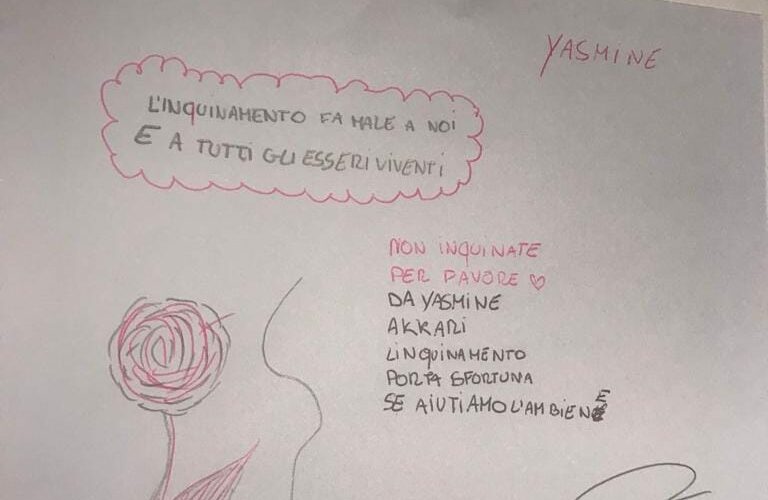 YASMINE
L'INQUINAMENTO FA MALE A NOI
E A TUTTI GLI ESSERI VIVENTI
NON INQUINATE
PER FAVORE ♡
DA YASMINE
AKKARI
LINQUINAMENTO
PORTA SFORTUNA
SE AIUTIAMO L'AMBIENE